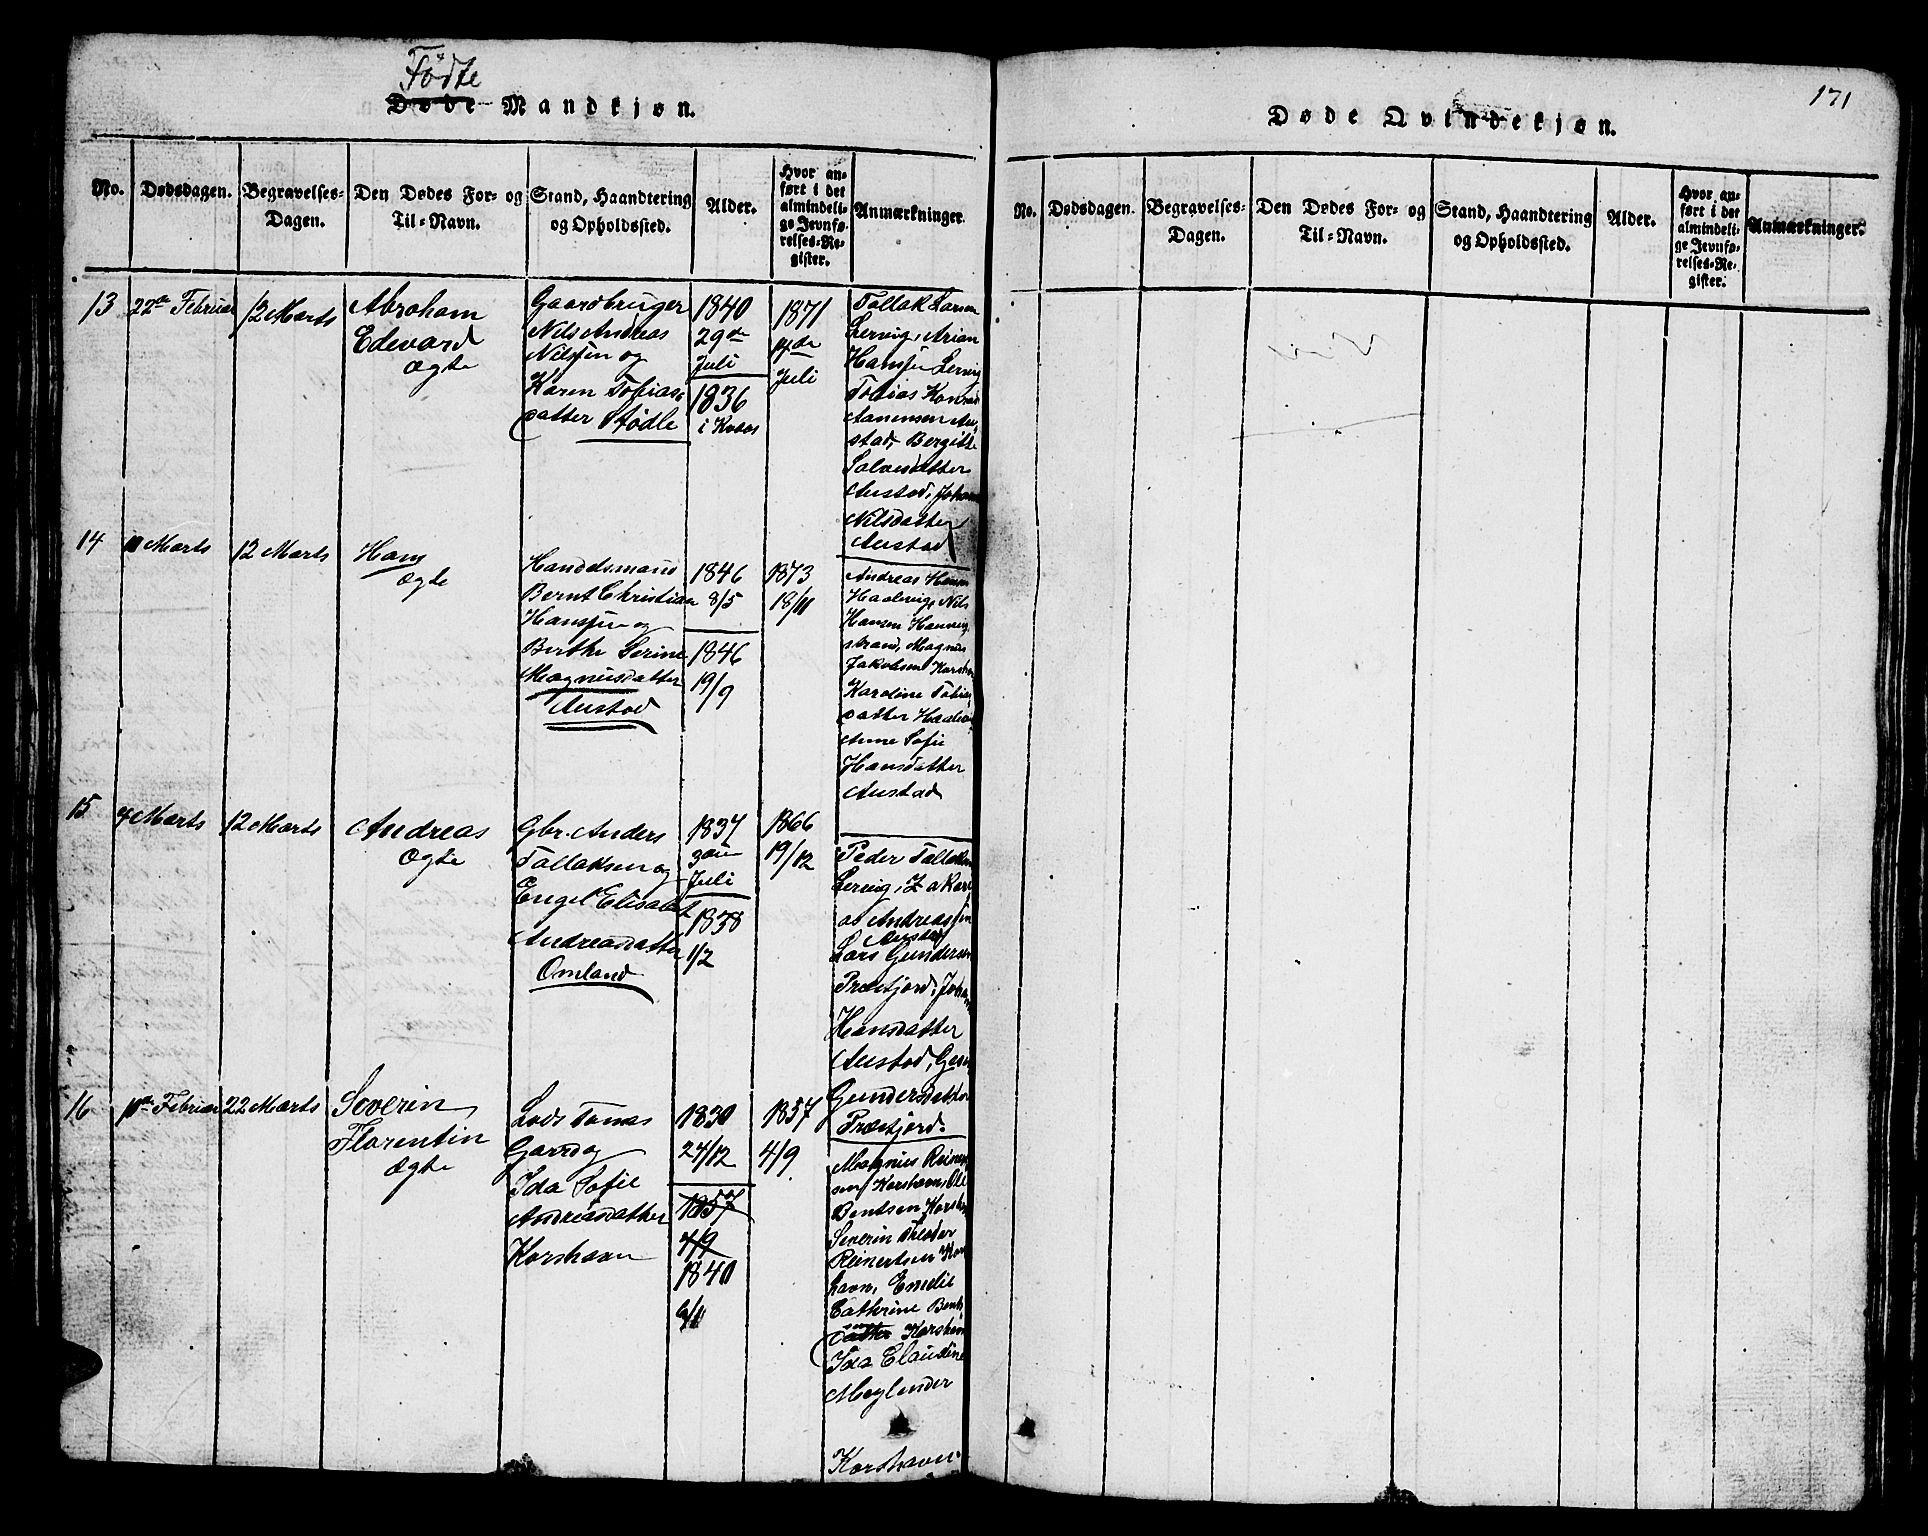 Fødte
Døde Mandkjøn.
No.
Dødsdagen.
Begravelses-
Dagen.
Den Dødes For- og
Til-Navn.
Stand, Haandtering
og Opholdssted.
Alder.
Hvor an-
ført i det
almindeli-
ge Jevnfø-
relses-Re-
gister.
Anmærkninger.
13
22de Februar
12 Marts
Abraham
Edevard
Ægte
Gaardbruger
Nils Andreas
Nilssen og
Karen Tobias-
datter Stødle
1840
29de
Juli
1836
i Kvaas
1871
4de
Juli
Tallak Larsen
Lervig, Arian
Hanssen Lervig
Tobias Konrad
Aanensen Au-
stad, Bergitte
Salvesdatter
Austad, Johanne
Nilsdatter
Austad
14
Marts
12 Marts
Hans
Ægte
Handelsmand
Bernt Christian
Hanssen og
Berthe Serine
Magnusdatter
Austad
1846
8/5
1846
19/9
1873
18/11
Andreas Hansen
Haalevig, Nils
Hansen
strand, Magnus
Jakobsen Korshavn
Karoline Tobias
datter
Anne Sofie
Hansdatter
Austad
15
4 Marts
12 Marts
Andreas
Ægte
Gbr. Anders
Tallaksen og
Engel Elisabet
Andreasdatter
Omland
1837
Juli
1838
1/2
1866
19/12
Peder Tallaksen
Lervig, Zakari
as Andreassen
Austad
Lars Gundersen
Præstjord, Johanne
Hansdatter
Austad,
Gundersdatter
Præstjord.
16
Februar
22 Marts
Severin
Florentin
Ægte
Lods Tomas
Gaard og
Ida Sofie
Andreasdatter
Korshavn
1830
27/12
1857
4/9
1840
9/11
1857
4/9
Magnus Reinert
sen Korshavn, Ole
Bentsen Korshavn
Severin Theodor
Reinertsen Kors
havn, Emelie
Cathrine Bent
sens
datter Korshavn
Ida Claudine
Meylender
Korshavn
171
Døde Qvindekjøn.
No.
Dødsdagen.
Begravelses-
Dagen.
Den Dødes For- og
Til-Navn.
Stand, Haandtering
og Opholdssted.
Alder.
Hvor an-
ført i det
almindeli-
ge Jevnfø-
relses-Re-
gister.
Anmærkninger.